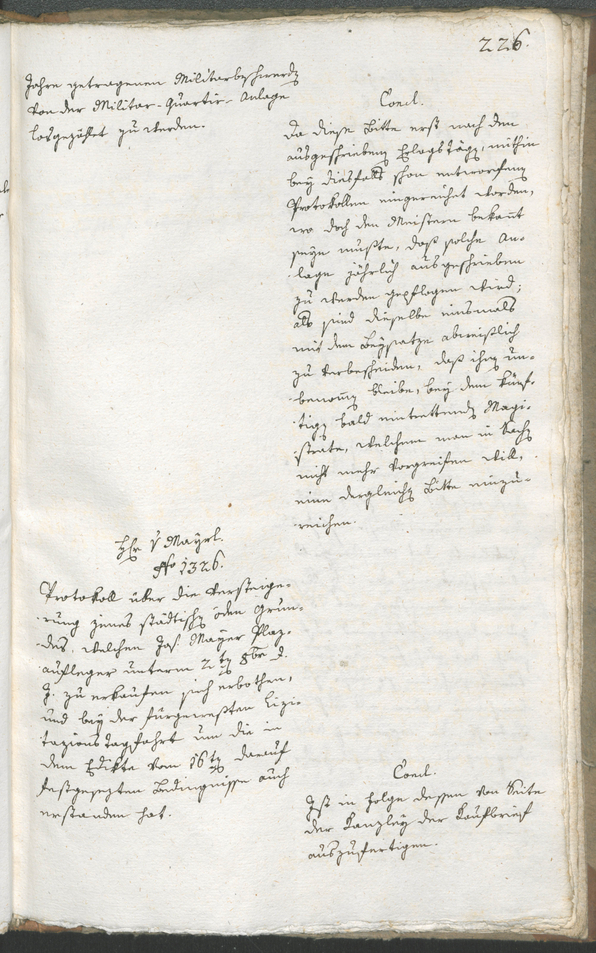 226.
Jahre getragenen Militarbeschwerde
von der Militar-Quartir-Anlage
losgezählt zu werden.
Concl.
Da diese Bitte erst nach den
ausgeschriebenen Erlagstägen, mithin
bey diesfalls schon entworfenen
Protokollen eingereichet worden,
wo doch den Meistern bekannt
seyn mußte, daß solche An-
lage jährlich ausgeschrieben
zu werden gepflogen wird;
als sind dieselbe einsmals
mit dem Beysatze abweislich
zu verbescheiden, daß ihnen un-
benommen bleibe, bey dem künf-
tigen bald eintrettenden Magi-
strate, welchem man in Sachen
nicht mehr vorgreifen will,
eine dergleichen Bitte einzu-
reichen.
Hr. v Mayrl.
No 1326.
Protokoll über die Versteige-
rung jenes städtischen öden Grun-
des, welchen Jos. Mayer Plaz-
aufleger unterm 2ten 8ber d.
J. zu erkaufen sich erbothen,
und bey der fürgewesten Lizi-
tazionstagfahrt um die in
dem Edikte vom 16ten darauf
festgesezten Bedingnisse auch
erstanden hat.
Concl.
Ist in Folge dessen von Seite
der Kanzley der Kaufbrief
auszufertigen.